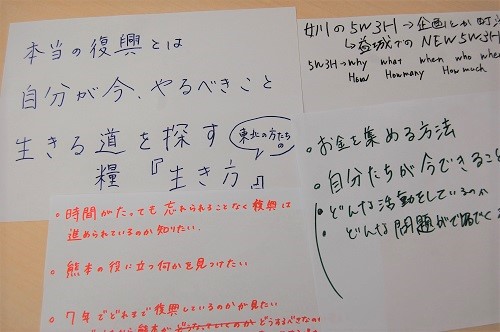 本当の復興とは
自分が今、やるべきこと
生きる道を探す
東北の方たちの
糧『生き方』
女川の5W3H→企画とか町づ
↳益城での NEW5W3H
5W3H→Why what when who where
How Howmany How much
・お金を集める方法
・自分たちが今できること
・どんな活動をしているのか
・どんな問題がでてくる
・時間がたっても忘れられることなく復興は
進められているのか知りたい.
・熊本の役に立つ何かを見つけたい
・7年でどれまで復興しているのかが見たい
どうするべきなのか